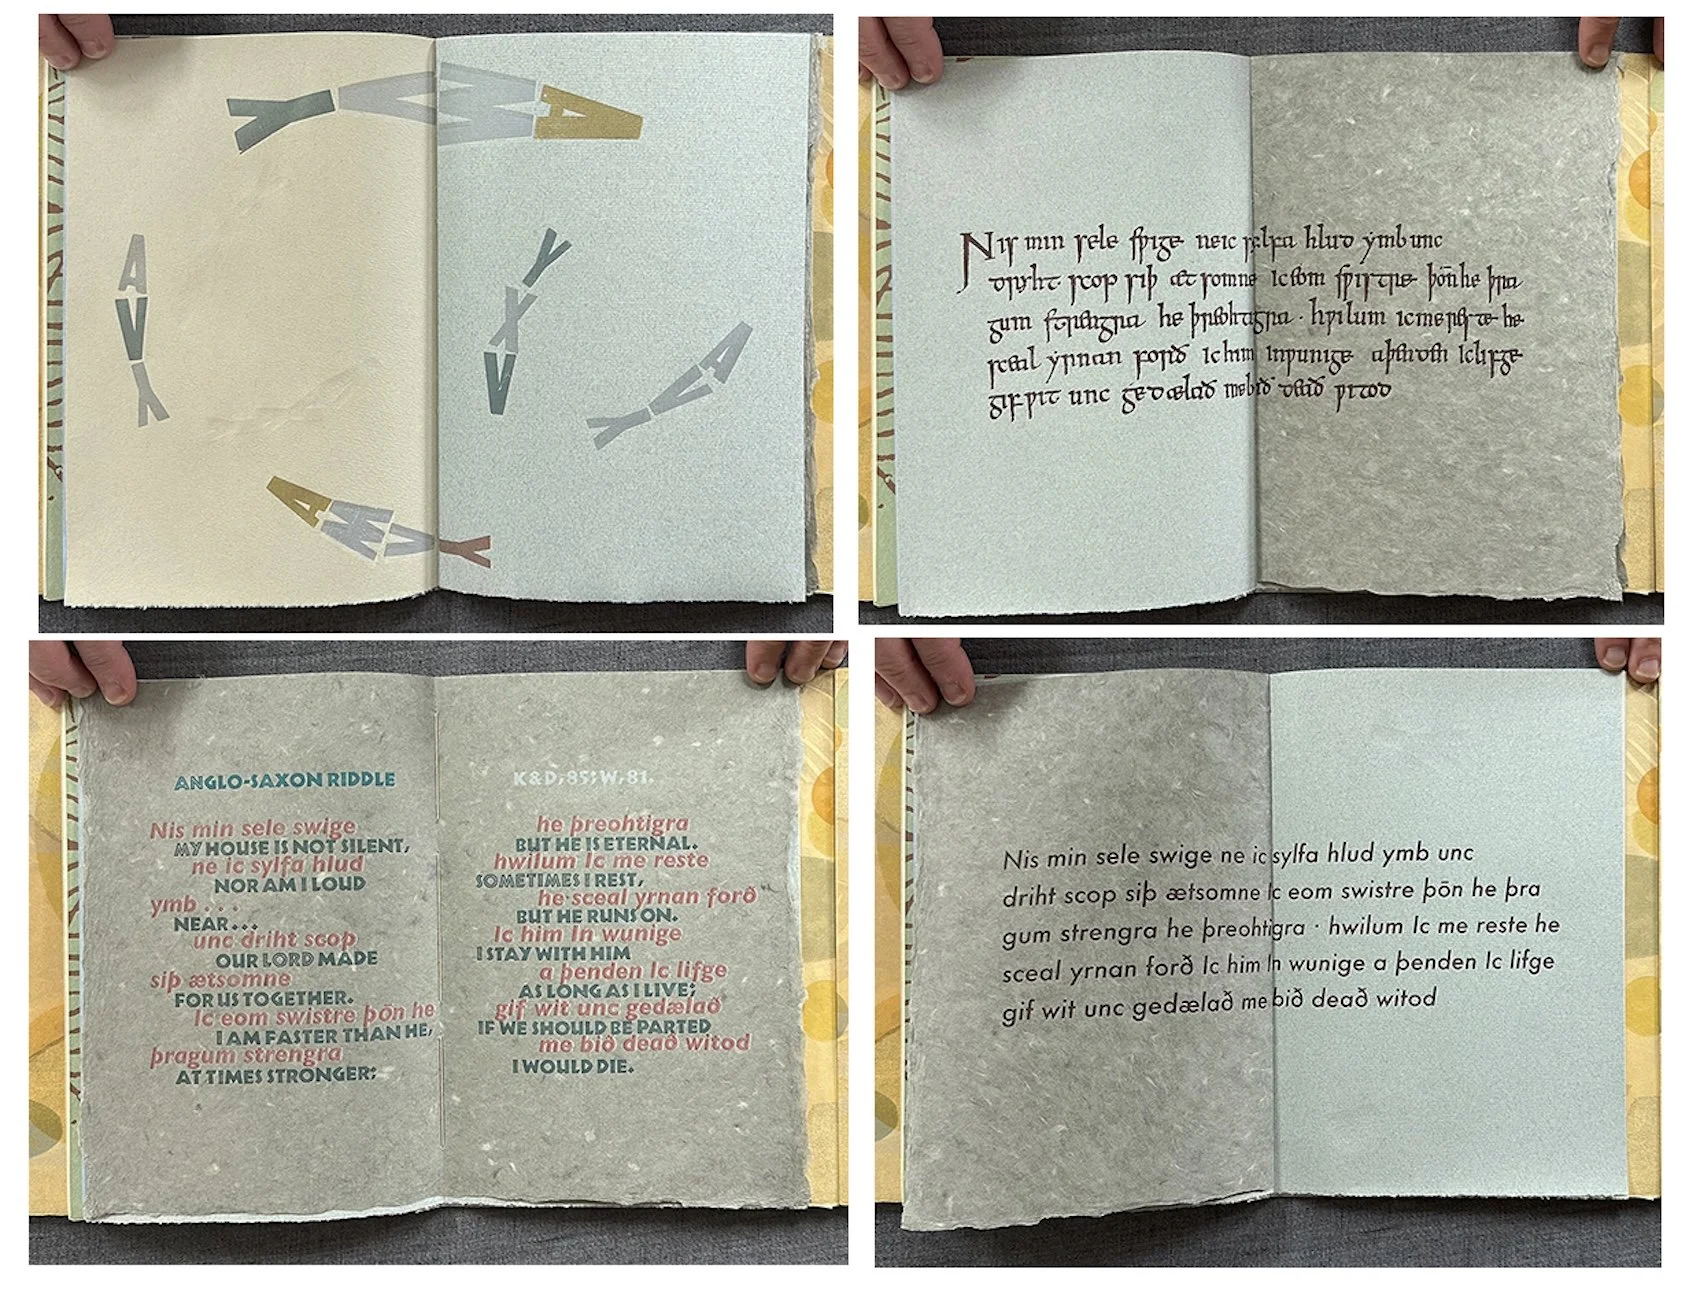 Y M A
A V Y
Y X V
Y V A
A M V Y
Nis min sele sƿige ne ic sylfa hlud ymb unc
driht scop siþ æt somne ic eom sƿistre þōn he þra
gum strengra he þreohtigra · hƿilum ic me reste he
sceal yrnan forð ic him in ƿunige a þenden ic lifge
gif ƿit unc gedælað me bið deað ƿitod
ANGLO-SAXON RIDDLE
Nis min sele swige
MY HOUSE IS NOT SILENT,
ne ic sylfa hlud
NOR AM I LOUD
ymb . . .
NEAR . . .
unc driht scop
OUR LORD MADE
siþ ætsomne
FOR US TOGETHER.
Ic eom swistre þōn he
I AM FASTER THAN HE,
þragum strengra
AT TIMES STRONGER;
K & D, 85; W, 81.
he þreohtigra
BUT HE IS ETERNAL.
hwilum Ic me reste
SOMETIMES I REST,
he sceal yrnan forð
BUT HE RUNS ON.
Ic him In wunige
I STAY WITH HIM
a þenden Ic lifge
AS LONG AS I LIVE;
gif wit unc gedælað
IF WE SHOULD BE PARTED
me bið deað witod
I WOULD DIE.
Nis min sele swige ne ic sylfa hlud ymb unc
driht scop siþ ætsomne Ic eom swistre þōn he þra
gum strengra he þreohtigra · hwilum Ic me reste he
sceal yrnan forð Ic him In wunige a þenden Ic lifge
gif wit unc gedælað me bið deað witod